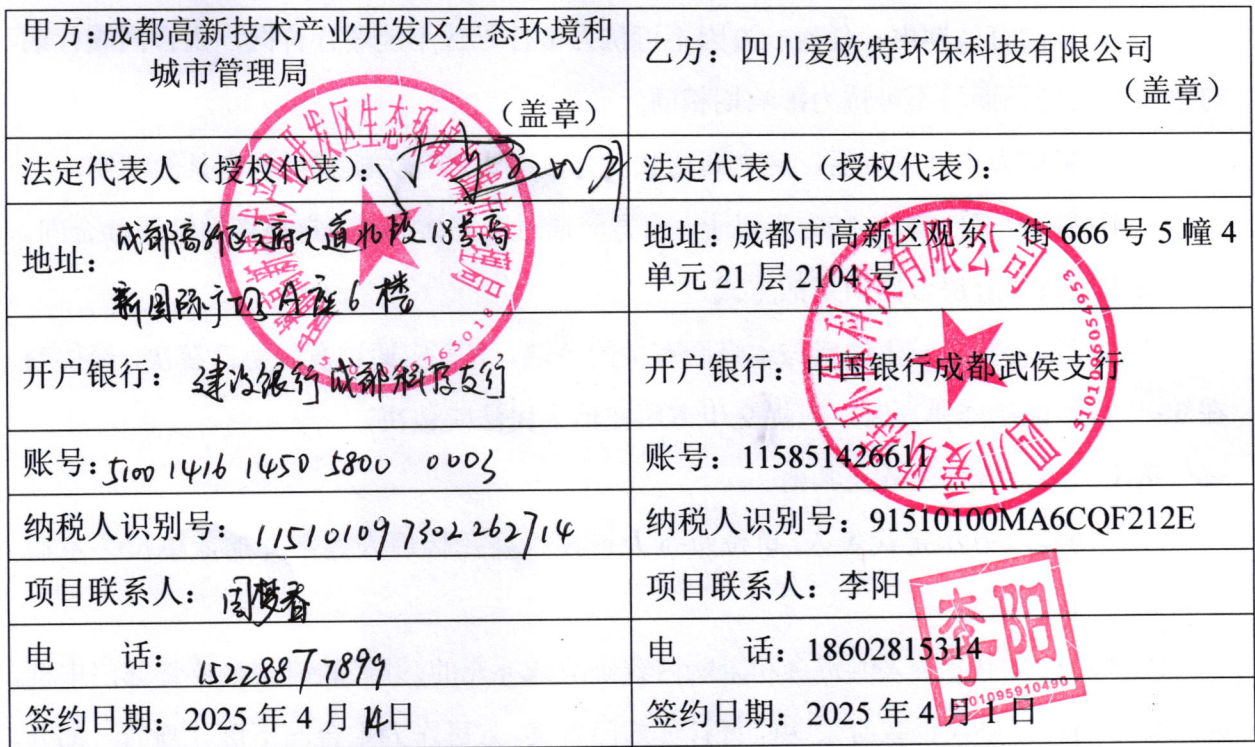 甲方：成都高新技术产业开发区生态环境和
城市管理局
（盖章）
乙方：四川爱欧特环保科技有限公司
（盖章）
法定代表人（授权代表）：
法定代表人（授权代表）：
地址：成都高新区天府大道北段18号高
新国际广场A座6楼
地址：成都市高新区观东一街 666 号 5 幢 4
单元 21 层 2104 号
开户银行：建设银行成都科技支行
开户银行：中国银行成都武侯支行
账号：5100 1416 1450 5800 0003
账号：115851426611
纳税人识别号：115101097302262714
纳税人识别号：91510100MA6CQF212E
项目联系人：周梦香
项目联系人：李阳
电 话：15228877899
电 话：18602815314
签约日期：2025 年 4 月 14日
签约日期：2025 年 4 月 1 日
四川爱欧特环保科技有限公司
5101096054953
李阳
5101095910490